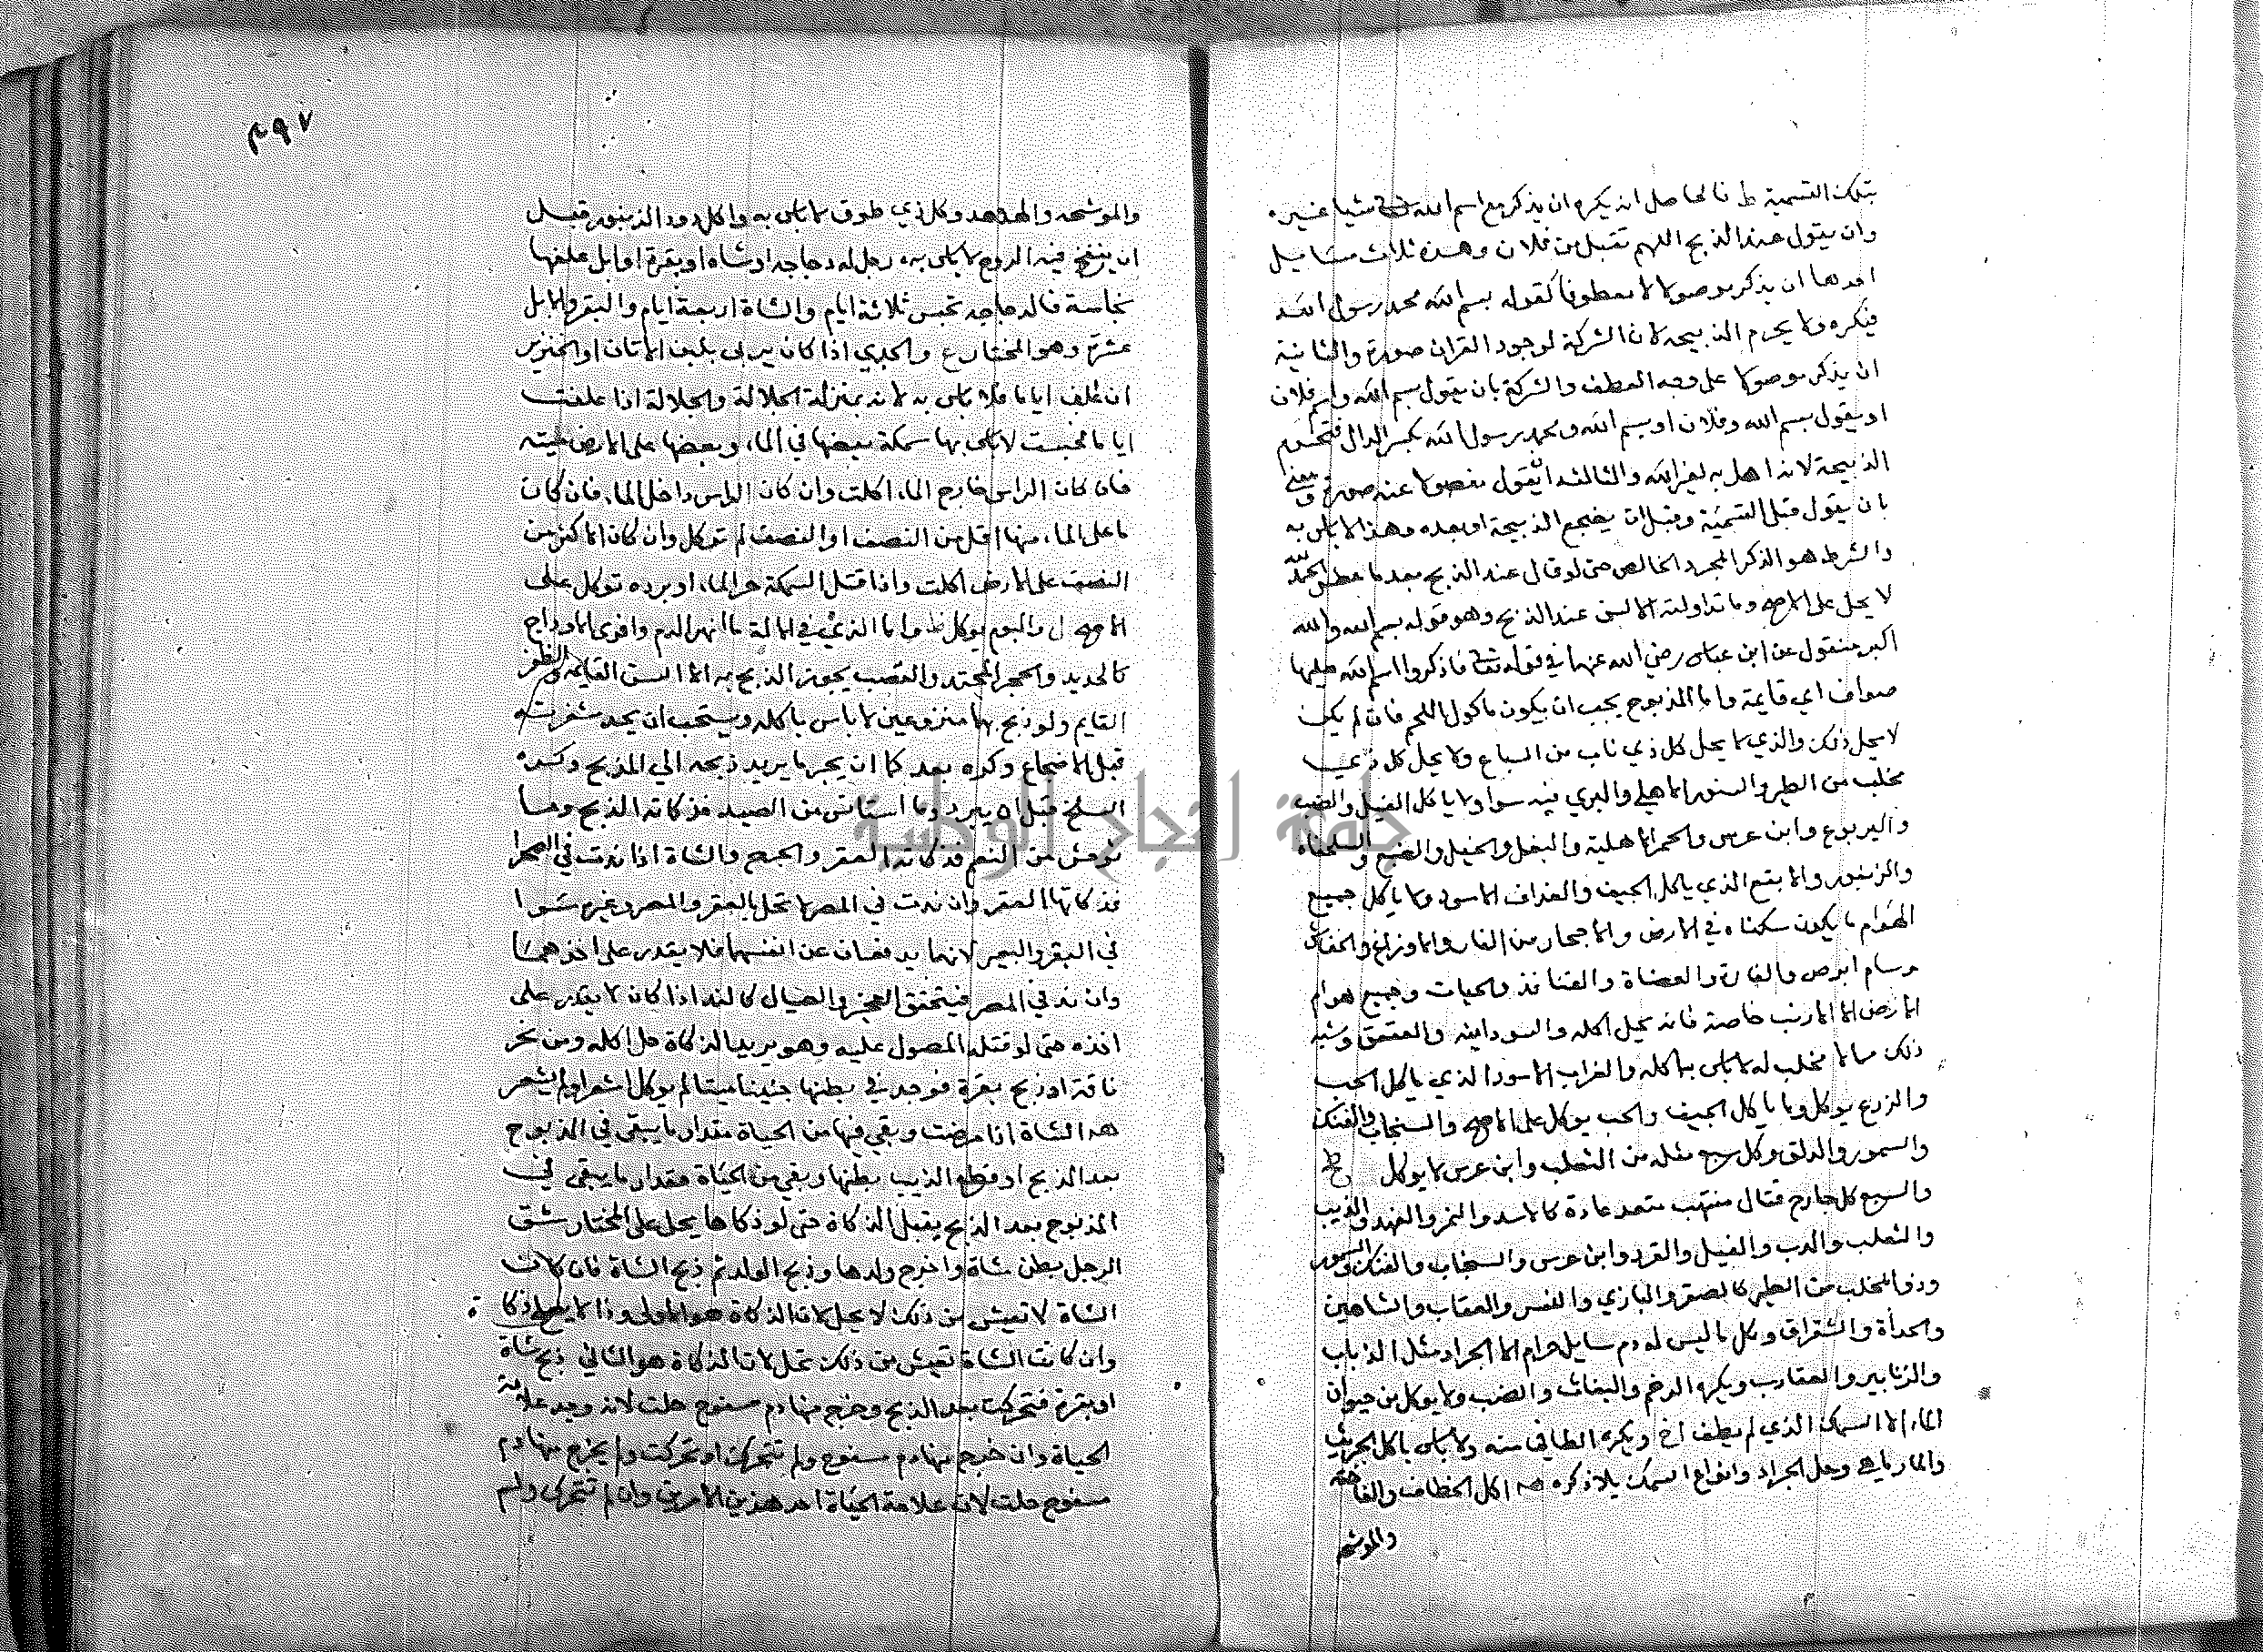 بتلك التسمية ط فالحاصل انه يكره ان يذكر مع اسم الله تع شيا غيره
وان يقول عند الذبح اللهم تقبل من فلان وهذه ثلاث مسايل
احدها ان يذكر موصولا لا معطوفا كقوله بسم الله محمد رسول الله
فيكره ولا يحرم الذبيحه لان الشركة لوجود القران صورة والثانية
ان يذكر موصولا على وجه العطف والشركة بان يقول بسم الله واسم فلان
او يقول بسم الله وفلان او بسم الله ومحمد رسول الله بكسر الدال فتحرم
الذبيحة لانه اهل به لغير الله والثالثه ان يقول مفصولا عنه صورة ومعنى
بان يقول قبل التسمية وقبل ان يضجع الذبيحة او بعده وهذا لا باس به
والشرط هو الذكر المجرد الخالص حتى لو قال عند الذبح بعد ما عطس الحمد لله
لا يحل على الاصح وما تداولته الالسن عند الذبح وهو قوله بسم الله والله
اكبر منقول عن ابن عباس رضي الله عنهما في قوله تع فاذكروا اسم الله عليها
صواف اي قايمة واما المذبوح يجب ان يكون ماكول اللحم فان لم يكن
لا يحل ذلك والذي لا يحل كل ذي ناب من السباع ولا يحل كل ذي
مخلب من الطير والسنور الاهلي والبري فيه سوا ولا ياكل الفيل والضب
واليربوع وابن عرس والحمر الاهلية والبغل والخيل والضبع والسلحفاة
والزنبور والابقع الذي ياكل الجيف والغداف الاسود ولا ياكل جميع
الهوام ما يكون سكناه في الارض والاجحار من الفار والاوزاغ والخفاش
وسام ابرص والفارة والعضاة والقنافذ والحيات وجميع هوام
الارض الا الارنب خاصة فانه يحل اكله والسودانيه والعقعق وشبه
ذلك مما لا مخلب له لا باس باكله والغراب الاسود الذي ياكل الحب
والزرع يوكل وما ياكل الجيف والحب يوكل على الاصح والسنجاب والفنك
والسمور والدلق وكل سبع مثله من الثعلب وابن عرس لا يوكل ط
والسبع كل جارح قتال منتهب متعد عادة كالاسد والنمر والفهد والذيب
والثعلب والدب والفيل والقرد وابن عرس والسنجاب والفنك والسمور
وذو المخلب من الطير كالصقر والبازي والنسر والعقاب والشاهين
والحدأة والشقراق وكل ما ليس له دم سايل حرام الا الجراد مثل الذباب
والزنابير والعقارب ويكره الرخم والبغاث والضب ولا يوكل من حيوان
الماء الا السمك الذي لم يطف اخ ويكره الطافي منه ولا باس باكل الجريث
والمارماهي وحل الجراد وانواع السمك بلا ذكوة هـ اكل الخطاف والفاخته
والموشحه
٤٩٧
والموشحه والهدهد وكل ذي طوق لا باس به واكل دود الزنبور قبل
ان ينفخ فيه الروح لا باس به رجل له دجاجه او شاه او بقرة او ابل علفها
نجاسة فالدجاجه تحبس ثلاثة ايام والشاة اربعة ايام والبقر والابل
عشرة وهو المختار ع والجدي اذا كان يربى بلبن الاتان او الخنزير
ان علف اياما فلا باس به لانه بمنزلة الجلالة والجلالة اذا علفت
اياما فحبست لا باس بها سمكة بعضها في الماء وبعضها على الارض ميته
فان كان الراس خارج الماء اكلت وان كان الراس داخل الماء فان كان
ما على الماء منها اقل من النصف او النصف لم توكل وان كان الاكثر من
النصف على الارض اكلت واذا قتل السمكة حر الماء او برده توكل على
الاصح ل والبوم يوكل ظ واما الذبح في الالة ما انهر الدم وافرى الاوداج
كالحديد والحجر المحدد والقصب يجوز الذبح به الا السن القايمه والظفر
القايم ولو ذبح بهما منزوعين لا باس باكله ويستحب ان يحد شفرته
قبل الاضجاع وكره بعد كما ان يجر ما يريد ذبحه الى المذبح وكسره
السلخ قبل ان يبرد وما استانس من الصيد فذكاته الذبح وما
توحش من النعم فذكاته العقر والجرح والشاة اذا ندت في الصحرا
فذكاتها العقر وان ندت في المصر لا تحل بالعقر والمصر وغيره سوا
في البقر والبعير لانهما يدفعان عن انفسهما فلا يقدر على اخذهما
وان ند في المصر فيتحقق العجز والصيال كالند اذا كان لا يقدر على
اخذه حتى لو قتله المصول عليه وهو يريد الذكاة حل اكله ومن نحر
ناقة او ذبح بقرة فوجد في بطنها جنينا ميتا لم يوكل اشعر او لم يشعر
هـ الشاة اذا مرضت وبقي فيها من الحياة مقدار ما يبقى في المذبوح
بعد الذبح او قطع الذيب بطنها وبقي من الحياة مقدار ما يبقى في
المذبوح بعد الذبح يقبل الذكاة حتى لو ذكاها يحل على المختار شق
الرجل بطن شاة واخرج ولدها وذبح الولد ثم ذبح الشاة فان كانت
الشاة لا تعيش من ذلك لا يحل لان الذكاة هو الاولى وذا لا يصلح ذكاة
وان كانت الشاة تعيش من ذلك تحل لان الذكاة هو الثاني ذبح شاة
او بقرة فتحركت بعد الذبح وخرج منها دم مسفوح حلت لانه وجد علامة
الحياة وان خرج منها دم مسفوح ولم تتحرك او تحركت ولم يخرج منها دم
مسفوح حلت لان علامة الحياة احد هذين الامرين وان لم تتحرك ولم
جامعة النجاح الوطنية